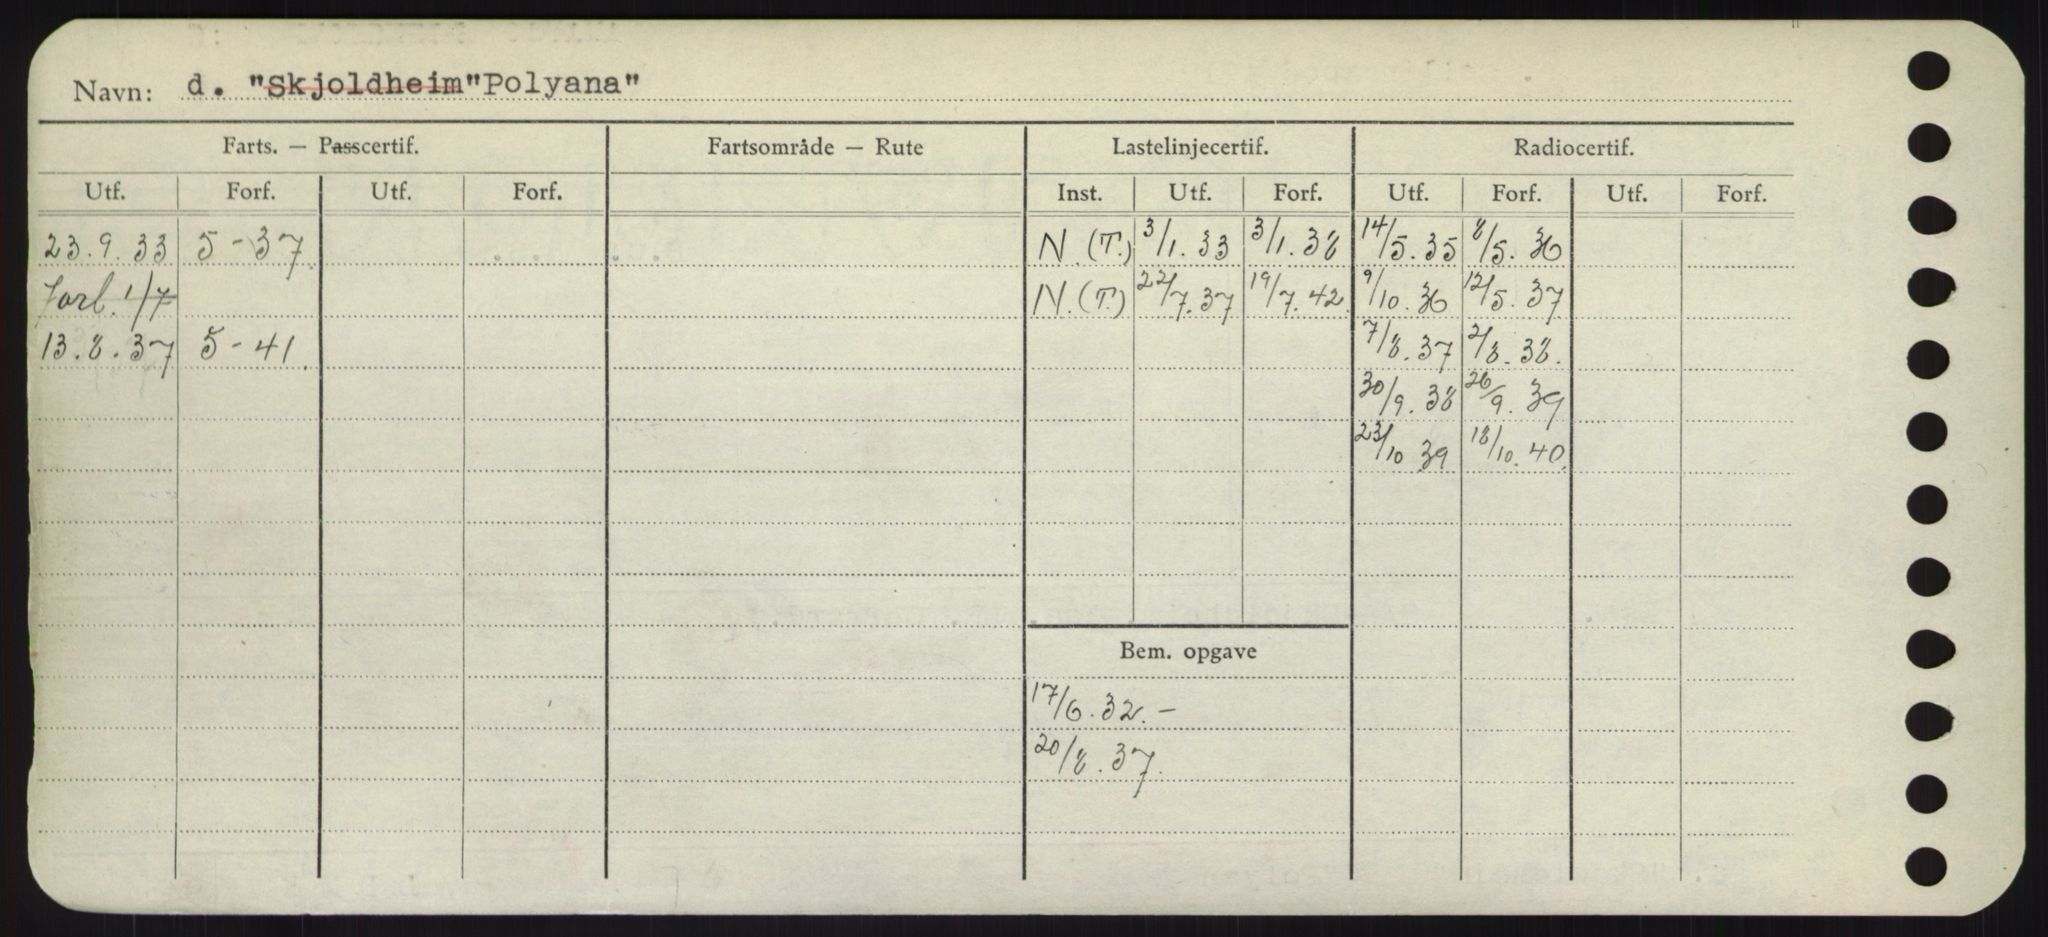 Navn: d. "Skjoldheim"Polyana"
Farts. — Passcertif. Fartsområde — Rute Lastelinjecertif. Radiocertif.
Utf. Forf. Utf. Forf. Inst. Utf. Forf. Utf. Forf. Utf. Forf.
23.9.33 5-37 N.(T.) 3/1.33 3/1.38 14/5.35 8/5.36
Forl. 1/7 N.(T.) 22/7.37 19/7.42 9/10.36 12/5.37
13.8.37 5-41 7/8.37 2/8.38.
30/9.38 26/9.39
23/10 39 18/10.40
Bem. opgave
17/6.32.-
20/8.37.